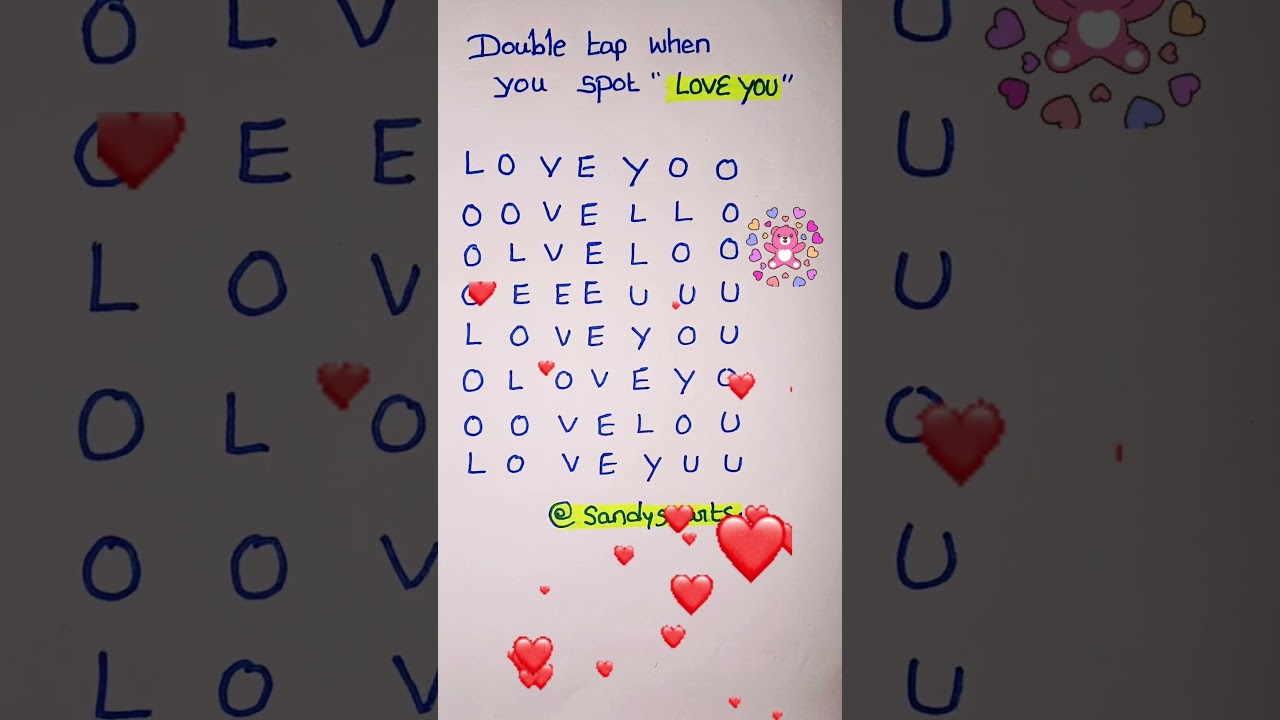 Double tap when
you spot "LOVE YOU"
L O V E Y O O
O O V E L L O
O L V E L O O
E E E U U U
L O V E Y O U
O L O V E Y O
O O V E L O U
L O V E Y U U